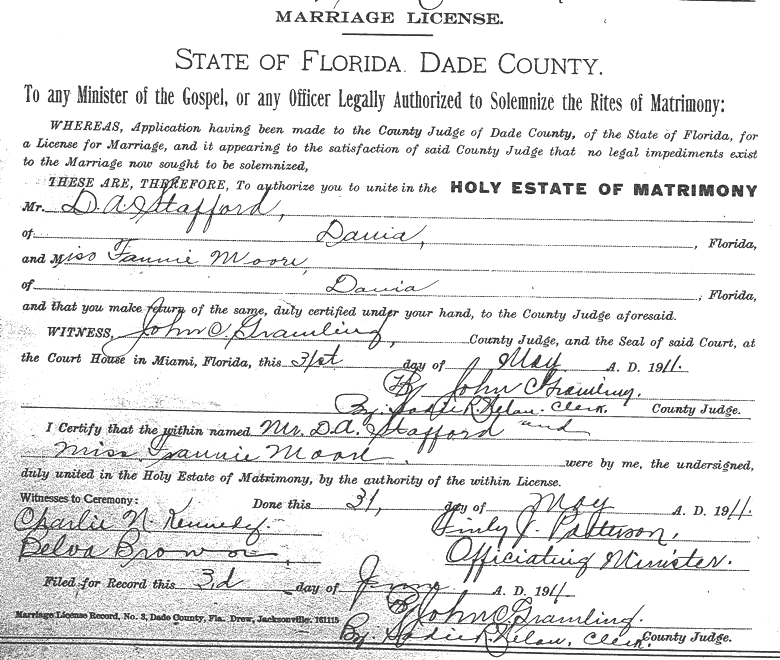 MARRIAGE LICENSE.
STATE OF FLORIDA. DADE COUNTY.
To any Minister of the Gospel, or any Officer Legally Authorized to Solemnize the Rites of Matrimony:
WHEREAS, Application having been made to the County Judge of Dade County, of the State of Florida, for
a License for Marriage, and it appearing to the satisfaction of said County Judge that no legal impediments exist
to the Marriage now sought to be solemnized,
THESE ARE, THEREFORE, To authorize you to unite in the HOLY ESTATE OF MATRIMONY
Mr. D. A. Stafford,
of Dania, , Florida,
and Miss Fannie Moore,
of Dania , Florida,
and that you make return of the same, duly certified under your hand, to the County Judge aforesaid.
WITNESS, John C. Gramling, County Judge, and the Seal of said Court, at
the Court House in Miami, Florida, this 31st day of May A. D. 1911.
By John C Gramling.
By. Clerk. County Judge.
I Certify that the within named Mr. D.A. Stafford and
Miss Fannie Moore. were by me, the undersigned,
duly united in the Holy Estate of Matrimony, by the authority of the within License.
Witnesses to Ceremony: Done this 31, day of May A. D. 1911.
Charlie N. Kennedy. J. Patterson,
Belva Brown Officiating Minister.
Filed for Record this 3,d day of June A. D. 1911
By John C. Gramling.
Marriage License Record, No. 3, Dade County, Fla. Drew, Jacksonville. 161115 By. Clerk. County Judge.